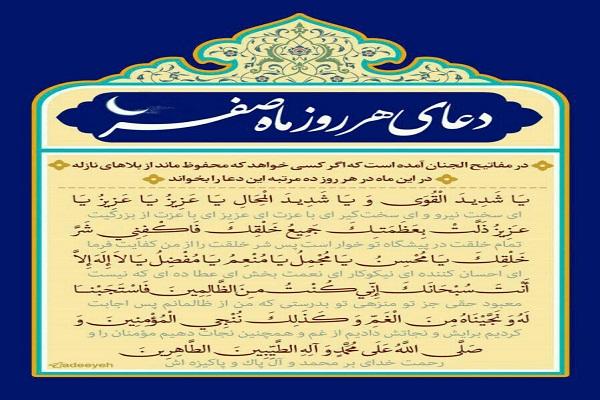 دعای هر روز ماه صفر
در مفاتیح الجنان آمده است که اگر کسی خواهد که محفوظ ماند از بلاهای نازله
در این ماه در هر روز ده مرتبه این دعا را بخواند
يَا شَدِيدَ الْقُوَى وَ يَا شَدِيدَ الْمِحَالِ يَا عَزِيزُ يَا عَزِيزُ يَا
ای سخت نیرو و ای سخت‌گیر ای با عزت ای عزیز ای با عزت از بزرگیت
عَزِيزُ ذَلَّتْ بِعَظَمَتِكَ جَمِيعُ خَلْقِكَ فَاكْفِنِي شَرَّ
تمام خلقت در پیشگاه تو خوار است پس شر خلقت را از من کفایت فرما
خَلْقِكَ يَا مُحْسِنُ يَا مُجْمِلُ يَا مُنْعِمُ يَا مُفْضِلُ يَا لَا إِلَهَ إِلَّا
ای احسان کننده ای نیکوکار ای نعمت بخش ای عطا ده ای که نیست
أَنْتَ سُبْحَانَكَ إِنِّي كُنْتُ مِنَ الظَّالِمِينَ فَاسْتَجَبْنَا
معبود حقی جز تو منزهی تو بدرستی که من از ظالمانم پس اجابت
لَهُ وَ نَجَّيْنَاهُ مِنَ الْغَمِّ وَ كَذَلِكَ نُنْجِي الْمُؤْمِنِينَ وَ
کردیم برایش و نجاتش دادیم از غم و همچنین نجات دهیم مؤمنان را و
صَلَّى اللَّهُ عَلَى مُحَمَّدٍ وَ آلِهِ الطَّيِّبِينَ الطَّاهِرِينَ
رحمت خدای بر محمد و آل پاک و پاکیزه اش
adeeyeh